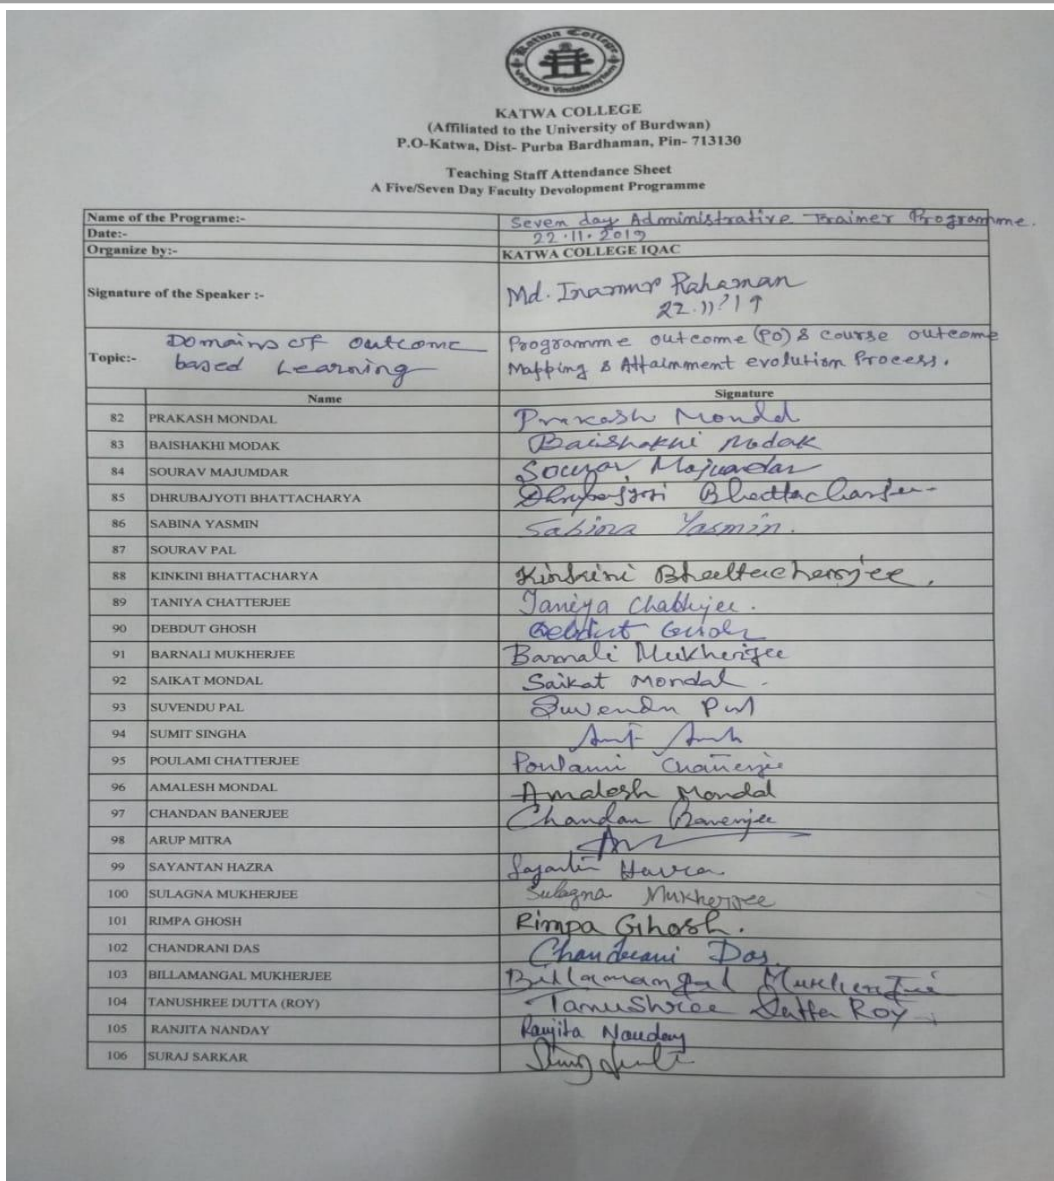 Katwa College
KATWA COLLEGE
(Affiliated to the University of Burdwan)
P.O-Katwa, Dist- Purba Bardhaman, Pin- 713130
Teaching Staff Attendance Sheet
A Five/Seven Day Faculty Devolopment Programme
Name of the Programe:- Seven day Administrative Trainer Programme.
Date:- 22.11.2019
Organize by:- KATWA COLLEGE IQAC
Signature of the Speaker :- Md. Inamur Rahaman
22.11.19
Topic:- Domains of outcome based Learning
Programme outcome (PO) & course outcome
Mapping & Attainment evolution Process.
Name Signature
82 PRAKASH MONDAL Prakash Mondal
83 BAISHAKHI MODAK Baishakhi Modak
84 SOURAV MAJUMDAR Sourav Majumdar
85 DHRUBAJYOTI BHATTACHARYA Dhrubajyoti Bhattacharya
86 SABINA YASMIN Sabina Yasmin.
87 SOURAV PAL
88 KINKINI BHATTACHARYA Kinkini Bhattacherjee.
89 TANIYA CHATTERJEE Taniya Chatterjee.
90 DEBDUT GHOSH Debdut Ghosh
91 BARNALI MUKHERJEE Barnali Mukherjee
92 SAIKAT MONDAL Saikat Mondal.
93 SUVENDU PAL Suvendu Pal
94 SUMIT SINGHA
95 POULAMI CHATTERJEE Poulami Chatterjee
96 AMALESH MONDAL Amalesh Mondal
97 CHANDAN BANERJEE Chandan Banerjee
98 ARUP MITRA
99 SAYANTAN HAZRA Sayantan Hazra
100 SULAGNA MUKHERJEE Sulagna Mukherjee
101 RIMPA GHOSH Rimpa Ghosh.
102 CHANDRANI DAS Chandrani Das.
103 BILLAMANGAL MUKHERJEE Billamangal Mukherjee
104 TANUSHREE DUTTA (ROY) Tanushree Dutta Roy.
105 RANJITA NANDAY Ranjita Nanday
106 SURAJ SARKAR